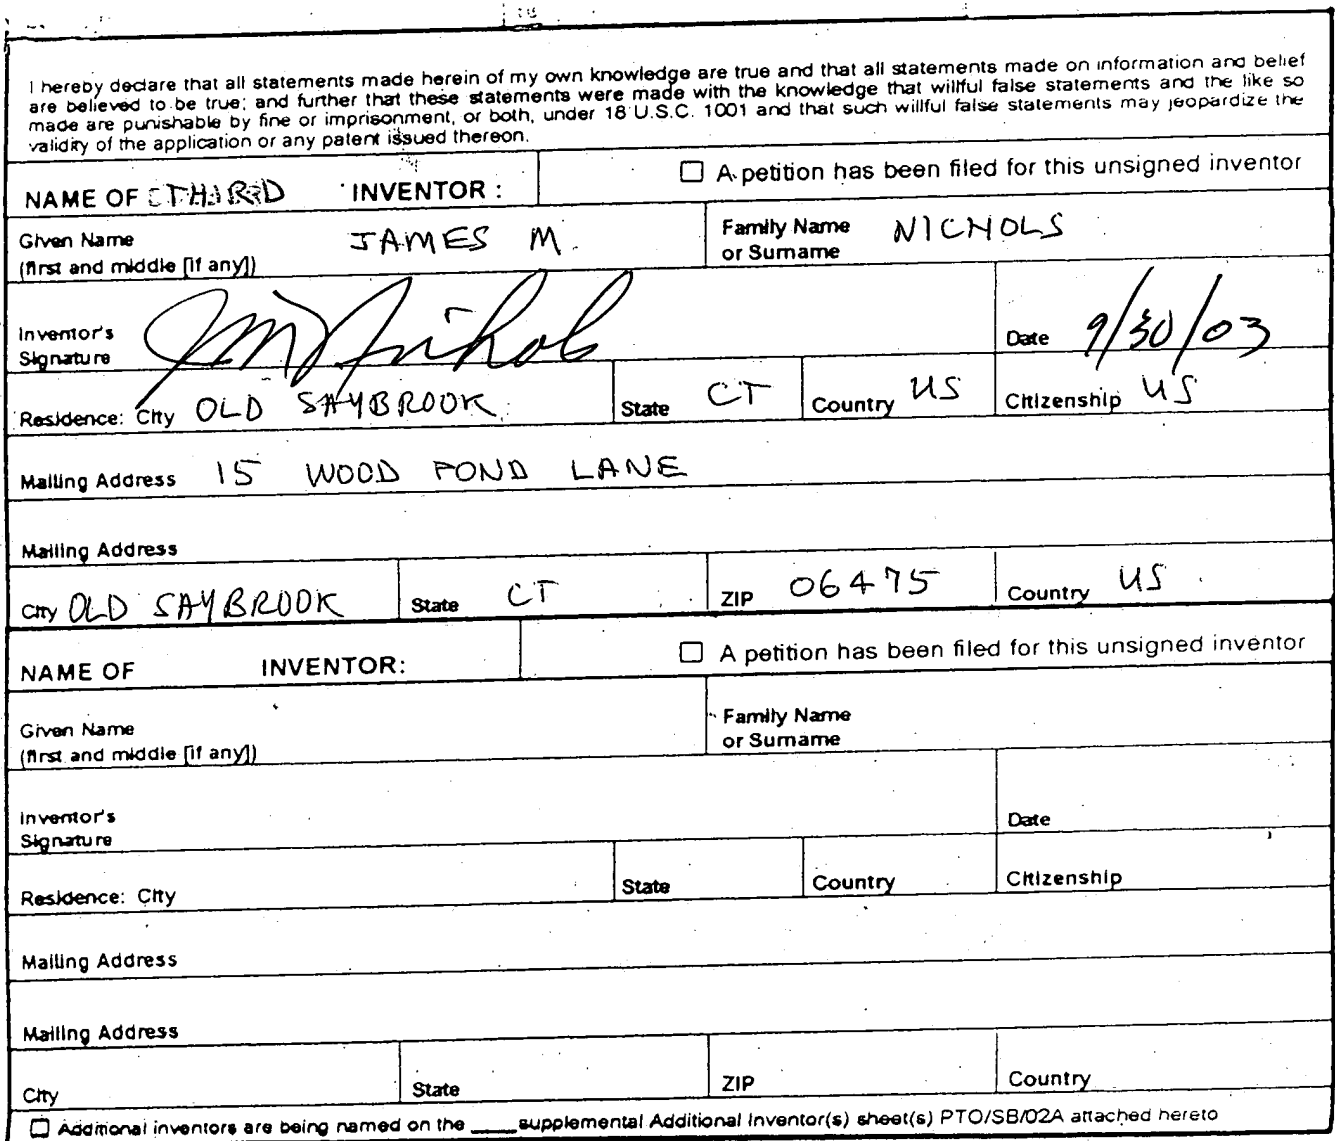 I hereby declare that all statements made herein of my own knowledge are true and that all statements made on information and belief
are believed to be true; and further that these statements were made with the knowledge that willful false statements and the like so
made are punishable by fine or imprisonment, or both, under 18 U.S.C. 1001 and that such willful false statements may jeopardize the
validity of the application or any patent issued thereon.
NAME OF THIRD INVENTOR : ☐ A petition has been filed for this unsigned inventor
Given Name JAMES M. Family Name NICHOLS
(first and middle [if any]) or Surname
Inventor's
Signature JM Nichols Date 9/30/03
Residence: City OLD SAYBROOK State CT Country US Citizenship US
Mailing Address 15 WOOD POND LANE
Mailing Address
City OLD SAYBROOK State CT ZIP 06475 Country US
NAME OF INVENTOR: ☐ A petition has been filed for this unsigned inventor
Given Name Family Name
(first and middle [if any]) or Surname
Inventor's
Signature Date
Residence: City State Country Citizenship
Mailing Address
Mailing Address
City State ZIP Country
☐ Additional inventors are being named on the ____ supplemental Additional Inventor(s) sheet(s) PTO/SB/02A attached hereto